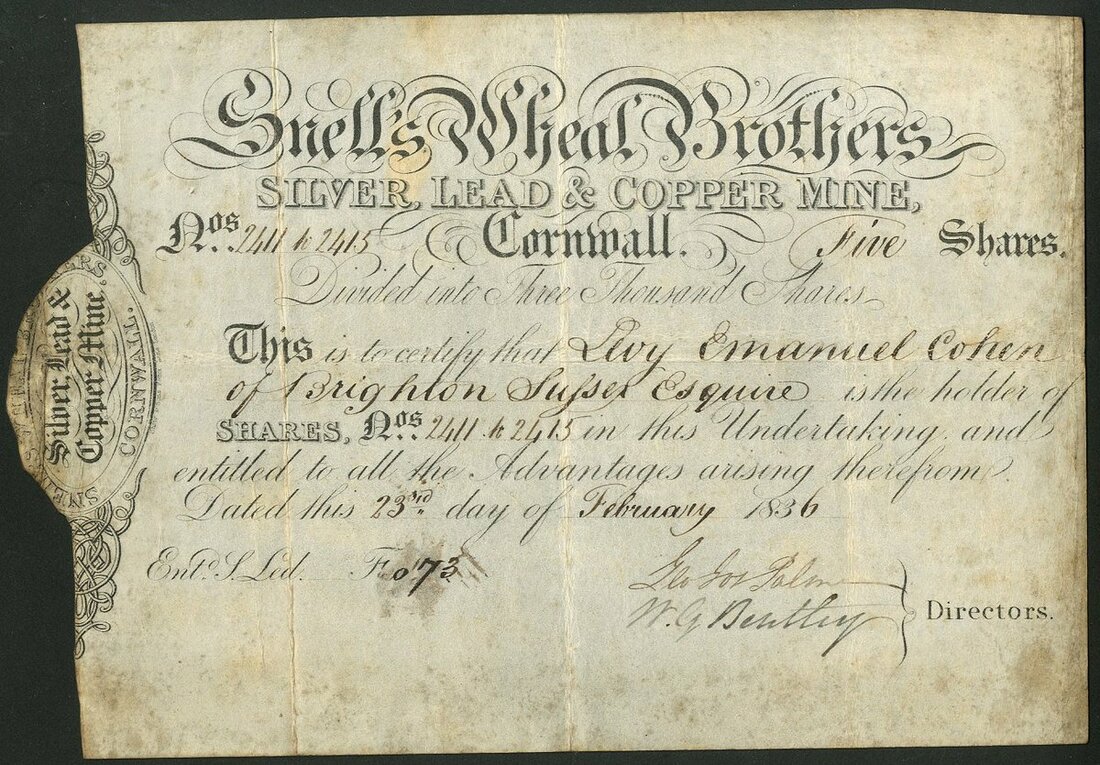 Snell's Wheal Brothers
SILVER, LEAD & COPPER MINE,
Nos. 2411 to 2415 Cornwall. Five Shares.
Divided into Three Thousand Shares
This is to certify that Levy Emanuel Cohen
of Brighton Sussex Esquire is the holder of
SHARES, Nos. 2411 to 2415 in this Undertaking and
entitled to all the Advantages arising therefrom.
Dated this 23rd day of February 1836
Entd. S. Led. Fo 73
Geo Jos Palmer
W. G. Bentley
Directors.
Silver, Lead &
Copper Mine,
CORNWALL.